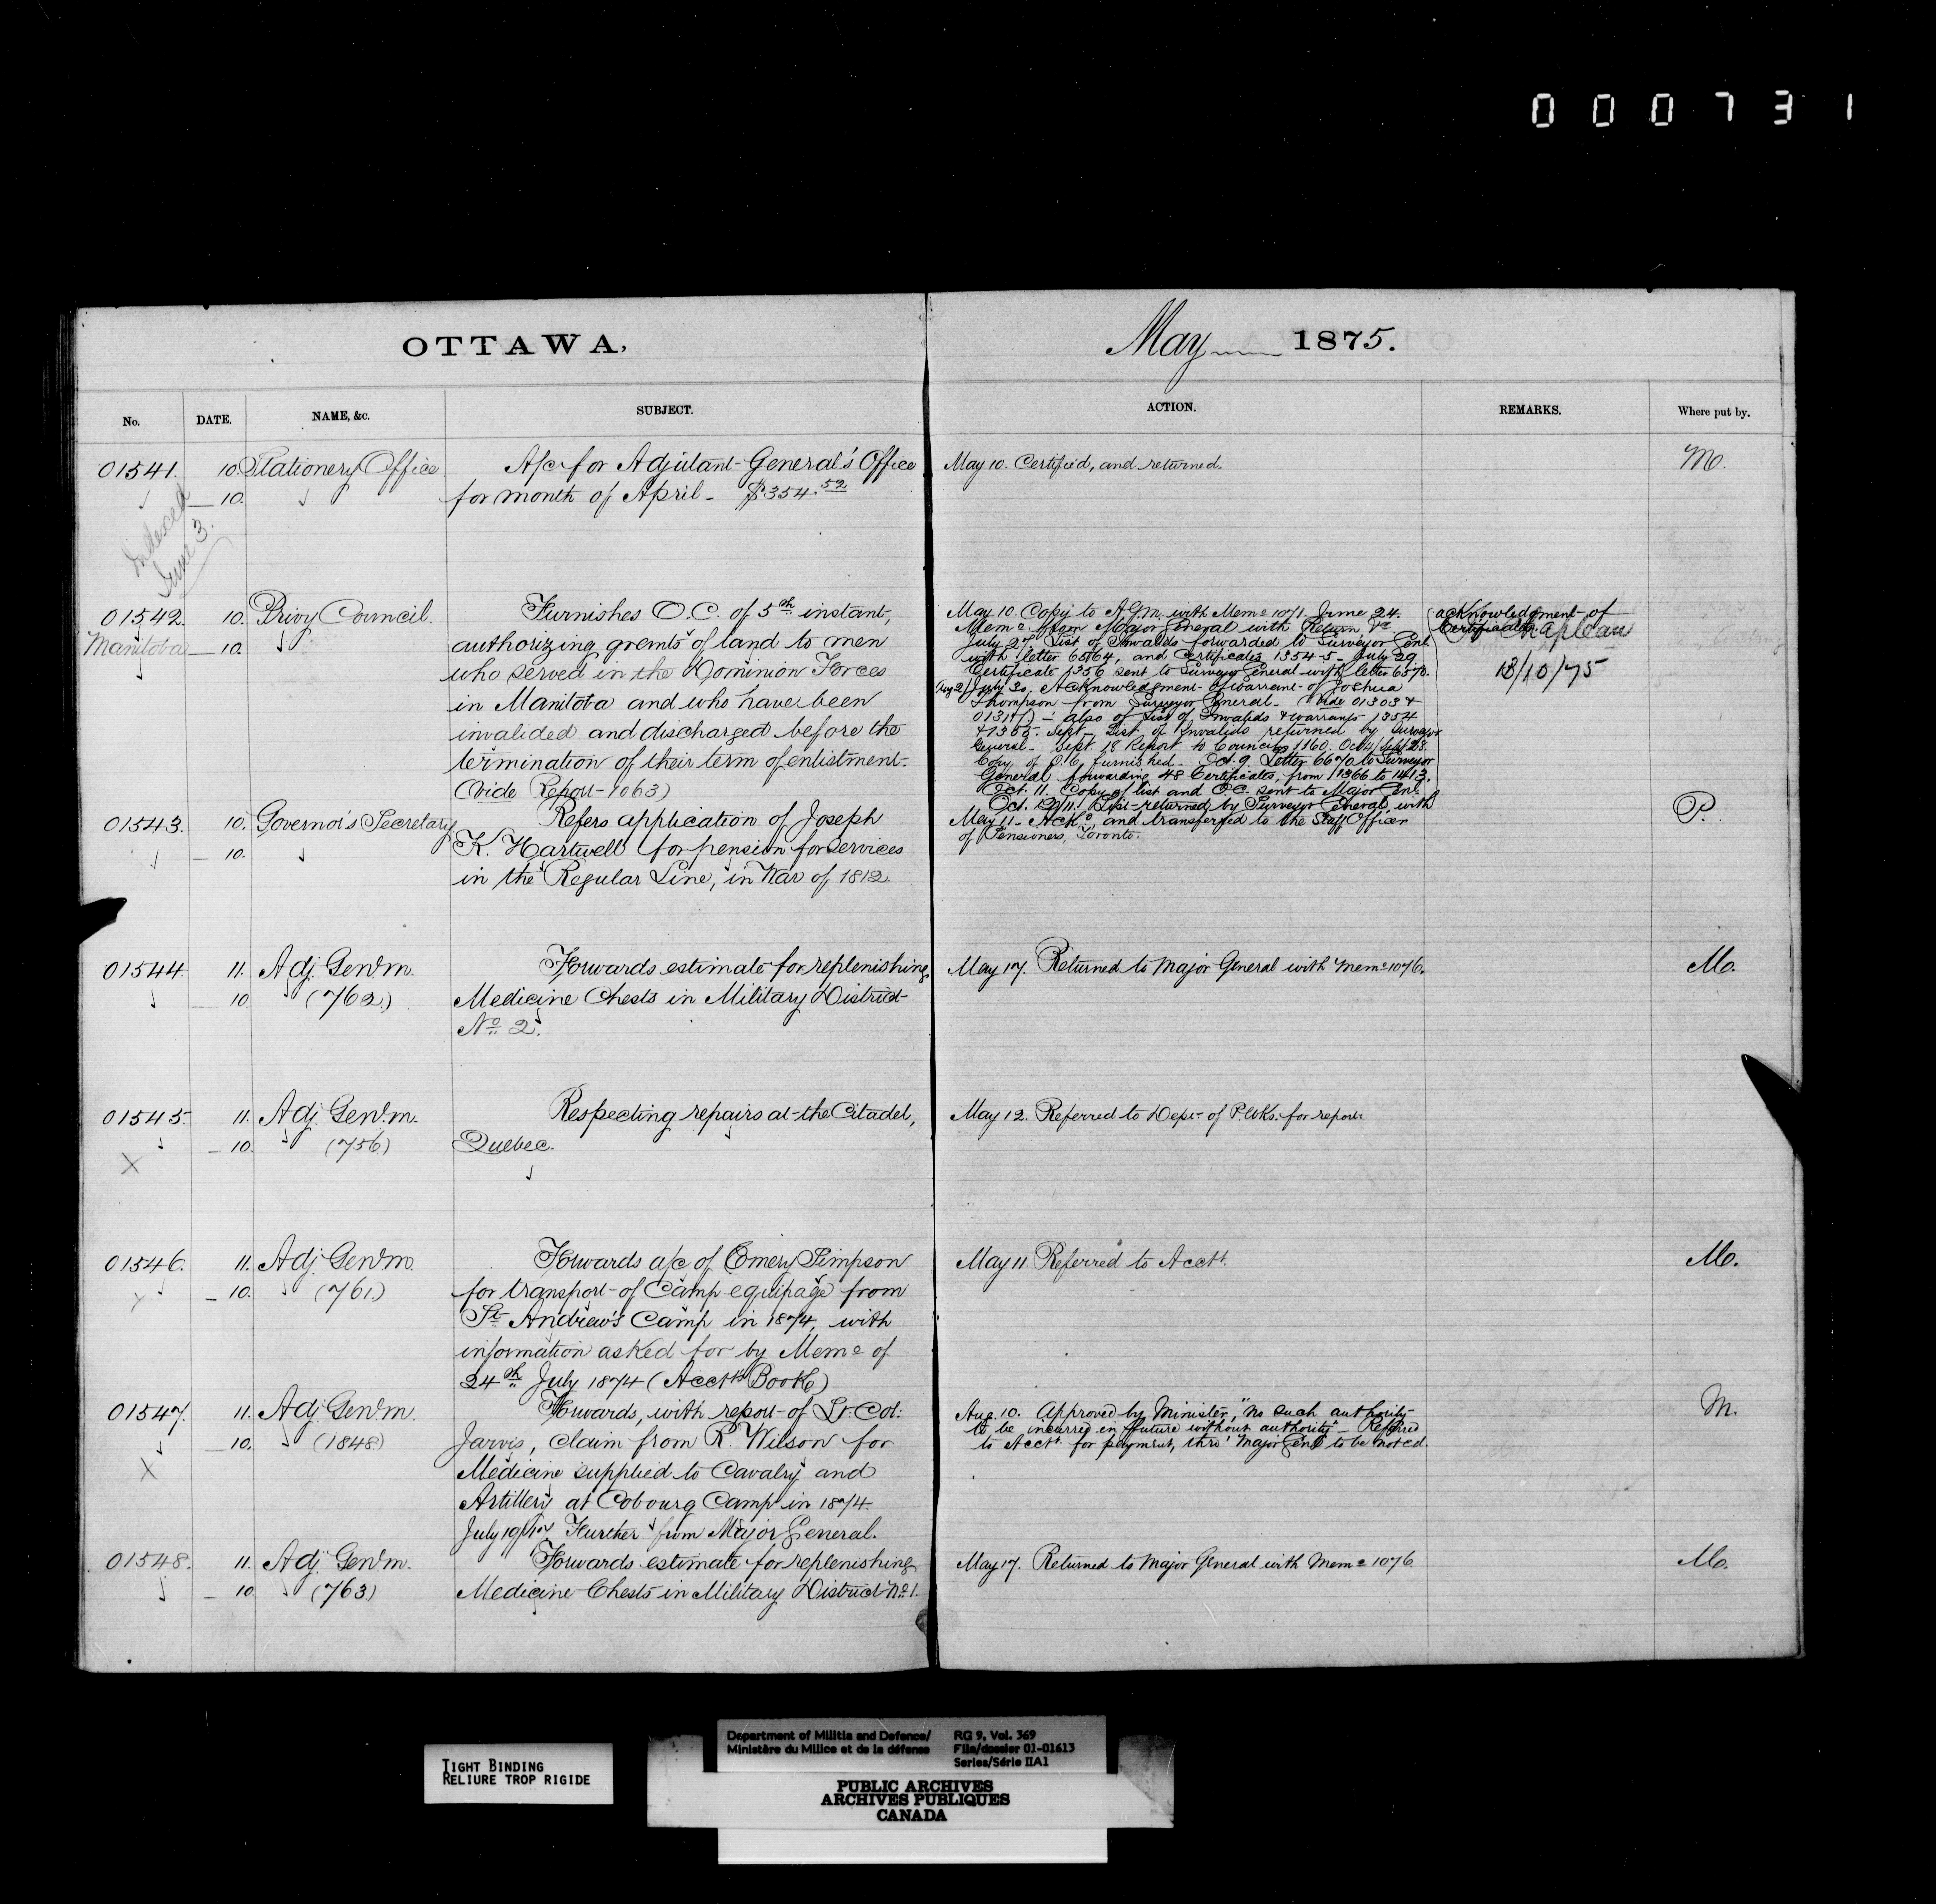 000731
OTTAWA,
May 1875.
No. DATE. NAME, &c. SUBJECT. ACTION. REMARKS. Where put by.
01541. 10. Stationery Office A/c for Adjutant-General's Office May 10. Certified, and returned. Mo.
— 10. for month of April - $354.52
Indexed
June 3.
01542. 10. Privy Council. Furnishes O.C. of 5th instant,
Manitoba — 10. authorizing gremts of land to men
who served in the Dominion Forces
in Manitoba and who have been
invalided and discharged before the
termination of their term of enlistment.
(Vide Report 1063)
May 10. Copy to A.G.M. with Memo 1071. June 24.
Memo from Major General with Return,
July 27. List of Invalids forwarded to Surveyor Genl.
with letter 6564, and Certificates 1354-5 - July 29
Certificate 1356 sent to Surveyor General with letter 6570.
Aug 2/ July 30. Acknowledgment of warrant of Joshua
Thompson from Surveyor General. (Vide 01303 &
- also of List of Invalids & warrants 1354
& 1355. Sept. List of Invalids returned by Surveyor
General - Sept. 18 Report to Council 1160. Oct 4/Sept 28.
Copy of O.C. furnished. Oct. 9. Letter 6670 to Surveyor
General forwarding 48 Certificates, from 1366 to 1413.
Oct. 11. Copy of list and O.C. sent to Major Genl.
List returned by Surveyor General, with
acknowledgment of
Certificates.
Chapleau
13/10/75
01543. 10. Governor's Secretary Refers application of Joseph May 11 - Ackd, and transferred to the Staff Officer P.
— 10. K. Hartwell for pension for services of Pensioners, Toronto.
in the Regular Line, in War of 1812
01544. 11. Adj. Genl. m. Forwards estimate for replenishing May 17. Returned to Major General with Memo 1076. Mo.
— 10 (762.) Medicine Chests in Military District
No 2.
01545. 11. Adj. Genl. m. Respecting repairs at the Citadel, May 12. Referred to Dept. of P. Wks. for report.
X — 10. (756) Quebec.
01546. 11. Adj. Genl. m. Forwards a/c of Emery Simpson May 11 Referred to Acct. Mo.
— 10. (761.) for transport of Camp equipage from
St Andrew's Camp in 1874, with
information asked for by Memo of
24th July 1874 (Accts Book)
01547. 11. Adj. Genl. m. Forwards, with report of Lt. Col: Aug. 10. Approved by Minister, "no such authority M.
— 10. (1848) Jarvis, claim from R. Wilson for to be incurred in future without authority" - Referred
X Medicine supplied to Cavalry and to Acct. for payment, thro' Major Genl to be noted.
Artillery at Cobourg Camp in 1874.
July Further from Major General.
01548. 11. Adj. Genl. m. Forwards estimate for replenishing May 17. Returned to Major General with Memo 1076 Mo.
— 10. (763) Medicine Chests in Military District No 1.
TIGHT BINDING
RELIURE TROP RIGIDE
Department of Militia and Defence/
Ministère du Milice et de la défense
RG 9, Vol. 369
File/dossier 01-01613
Series/Série IIA1
PUBLIC ARCHIVES
ARCHIVES PUBLIQUES
CANADA